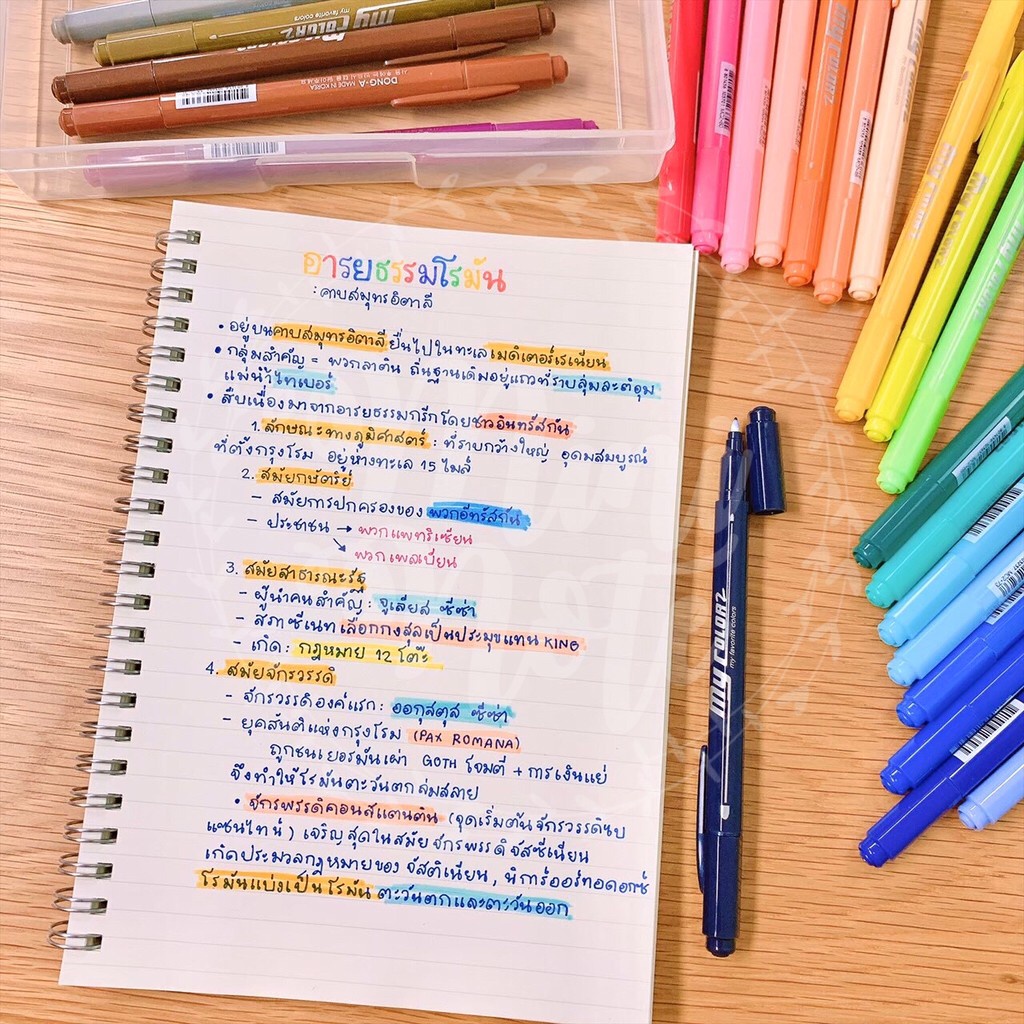 my COLOR2
my favorite colors
DONG-A
MADE IN KOREA
อารยธรรมโรมัน
: คาบสมุทรอิตาลี
• อยู่บนคาบสมุทรอิตาลียื่นไปในทะเลเมดิเตอร์เรเนียน
• กลุ่มสำคัญ = พวกลาติน ถิ่นฐานเดิมอยู่แถวที่ราบลุ่มละติอุม
แม่น้ำไทเบอร์
• สืบเนื่องมาจากอารยธรรมกรีกโดยชาวอินทรัสกัน
1. ลักษณะทางภูมิศาสตร์ : ที่ราบกว้างใหญ่ อุดมสมบูรณ์
ที่ตั้งกรุงโรม อยู่ห่างทะเล 15 ไมล์
2. สมัยกษัตริย์
- สมัยการปกครองของพวกอีทรัสกัน
- ประชาชน → พวกแพทริเซียน
↘ พวกเพลเบียน
3. สมัยสาธารณะรัฐ
- ผู้นำคนสำคัญ : จูเลียส ซีซ่า
- สภาซีเนทเลือกกงสุลเป็นประมุขแทน KING
- เกิด : กฎหมาย 12 โต๊ะ
4. สมัยจักรวรรดิ
- จักรวรรดิองค์แรก : ออกุสตุส ซีซ่า
- ยุคสันติแห่งกรุงโรม (PAX ROMANA)
ถูกชนเยอรมันเผ่า GOTH โจมตี + การเงินแย่
จึงทำให้โรมันตะวันตกล่มสลาย
• จักรพรรดิคอนสแตนติน (จุดเริ่มต้นจักรวรรดิไบ
แซนไทน์) เจริญสุดในสมัยจักรพรรดิจัสซีเนียน
เกิดประมวลกฎหมายของจัสติเนียน, นิการออร์ทอดอกซ์
โรมันแบ่งเป็นโรมันตะวันตกและตะวันออก
my COLOR2
my favorite colors